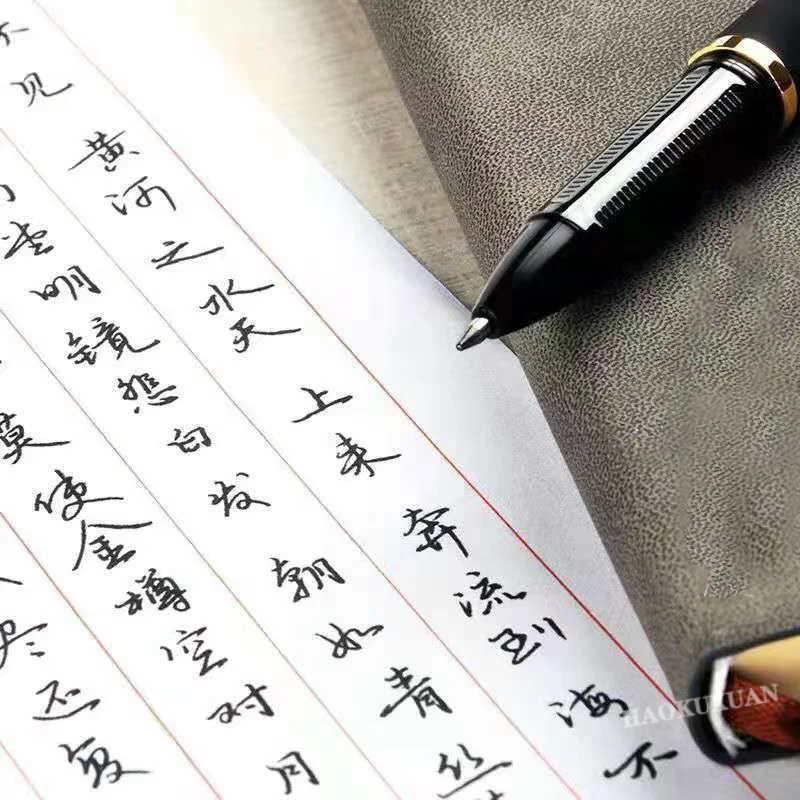 不见黄河之水天上来奔流到海不
堂明镜悲白发朝如青丝
莫使金樽空对月
尽还复
HAOKUKUAN